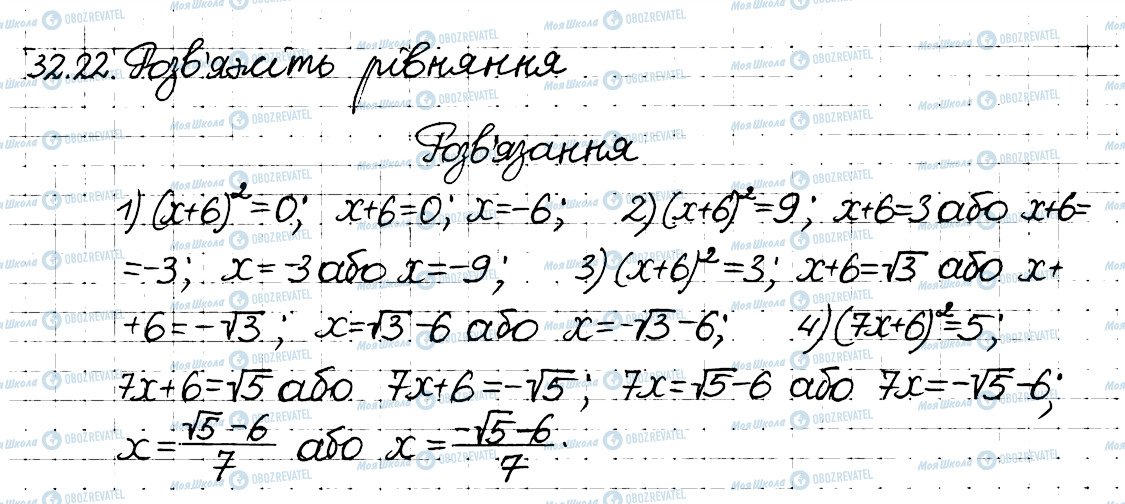 32.22. Розв'яжіть рівняння
Розв'язання
1) (x+6)²=0; x+6=0; x=-6; 2) (x+6)²=9; x+6=3 або x+6=
=-3; x=-3 або x=-9; 3) (x+6)²=3; x+6=√3 або x+
+6=-√3; x=√3-6 або x=-√3-6; 4) (7x+6)²=5;
7x+6=√5 або 7x+6=-√5; 7x=√5-6 або 7x=-√5-6;
x=(√5-6)/7 або x=(-√5-6)/7.
Моя Школа OBOZREVATEL